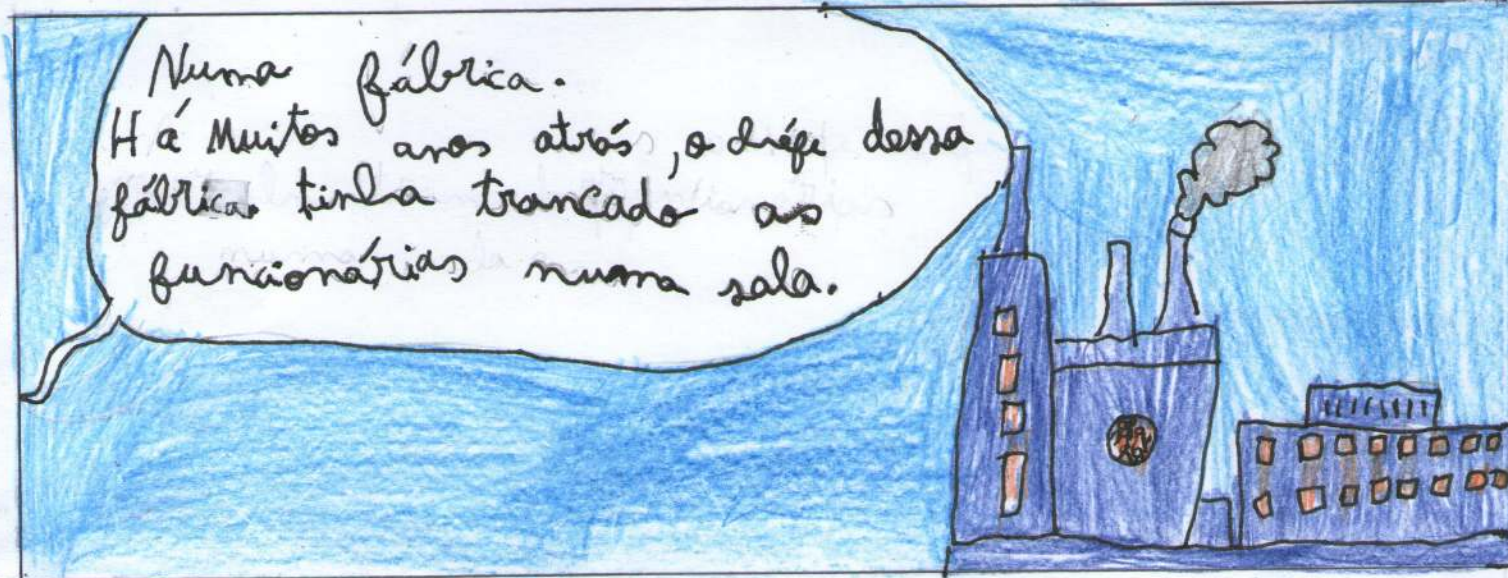 Numa fábrica.
Há Muitos anos atrás, o chéfe dessa
fábrica tinha trancado as
funcionárias numa sala.